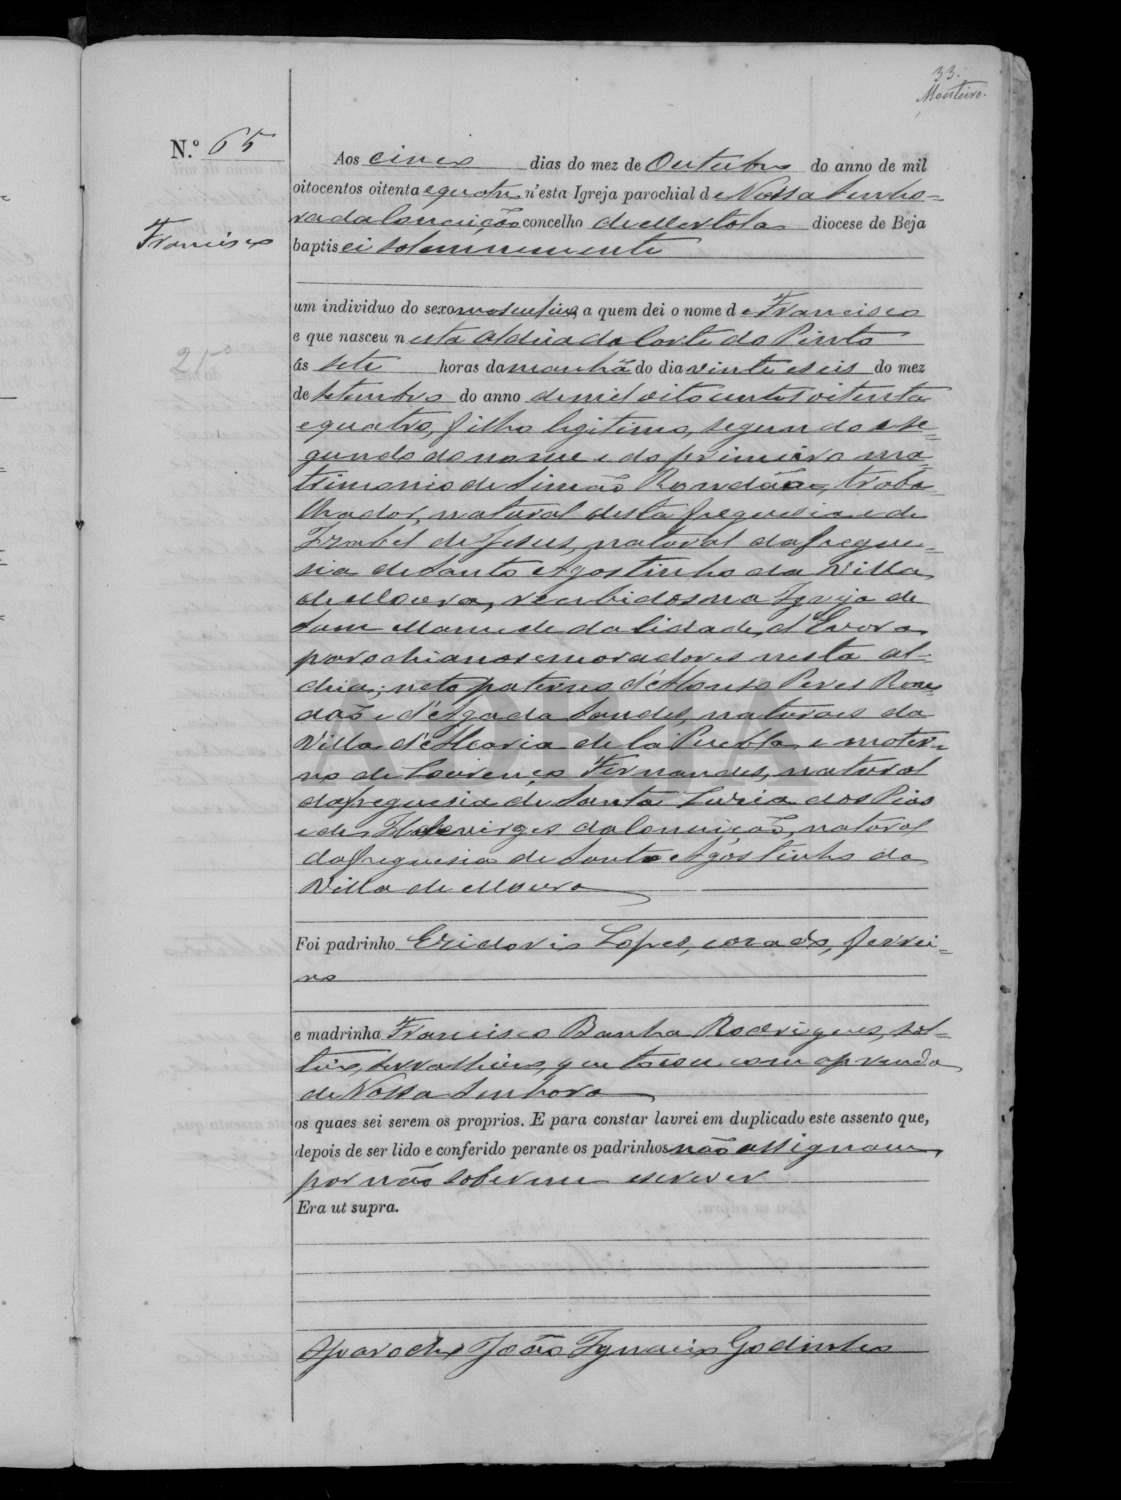 33.
Monteiro.
N.º 65
Francisco
Aos cinco dias do mez de Outubro do anno de mil
oitocentos oitenta e quatro n'esta Igreja parochial de Nossa Senho-
ra da Conceição concelho de Mertola diocese de Beja
baptisei solemnemente
um individuo do sexo masculino a quem dei o nome de Francisco
e que nasceu nesta Aldeia da Corte do Pinto
ás sete horas da manhã do dia vinte e seis do mez
de Setembro do anno de mil oito centos oitenta
e quatro, filho legitimo, segundo e se-
gundo do nome e do primeiro ma-
trimonio de Simão Rondão, traba-
lhador, natural desta freguesia e de
Izabel de Jesus, natural da fregue-
sia de Santo Agostinho da Villa
de Moura, recebidos na Igreja de
Sam Mamede da Cidade d'Evora,
parochianos e moradores nesta al-
deia; neto paterno d'Afonso Peres Ron-
dão e d'Agada Sandes, naturaes da
Villa d'Alcaria de la Puebla e mater-
no de Lourenço Fernandes, natural
da freguesia de Santa Luzia dos Pias
e de Edevirges da Conceição, natural
da freguesia de Santo Agostinho da
Villa de Moura
Foi padrinho Lopes, casado, ferrei-
ro
e madrinha Francisco Banha Rodrigues, sol-
teiro, serralheiro, que tocou com a prenda
de Nossa Senhora
os quaes sei serem os proprios. E para constar lavrei em duplicado este assento que,
depois de ser lido e conferido perante os padrinhos não assignam
por não saberem escrever
Era ut supra.
O parocho João Ignacio Godinho
ADBJA